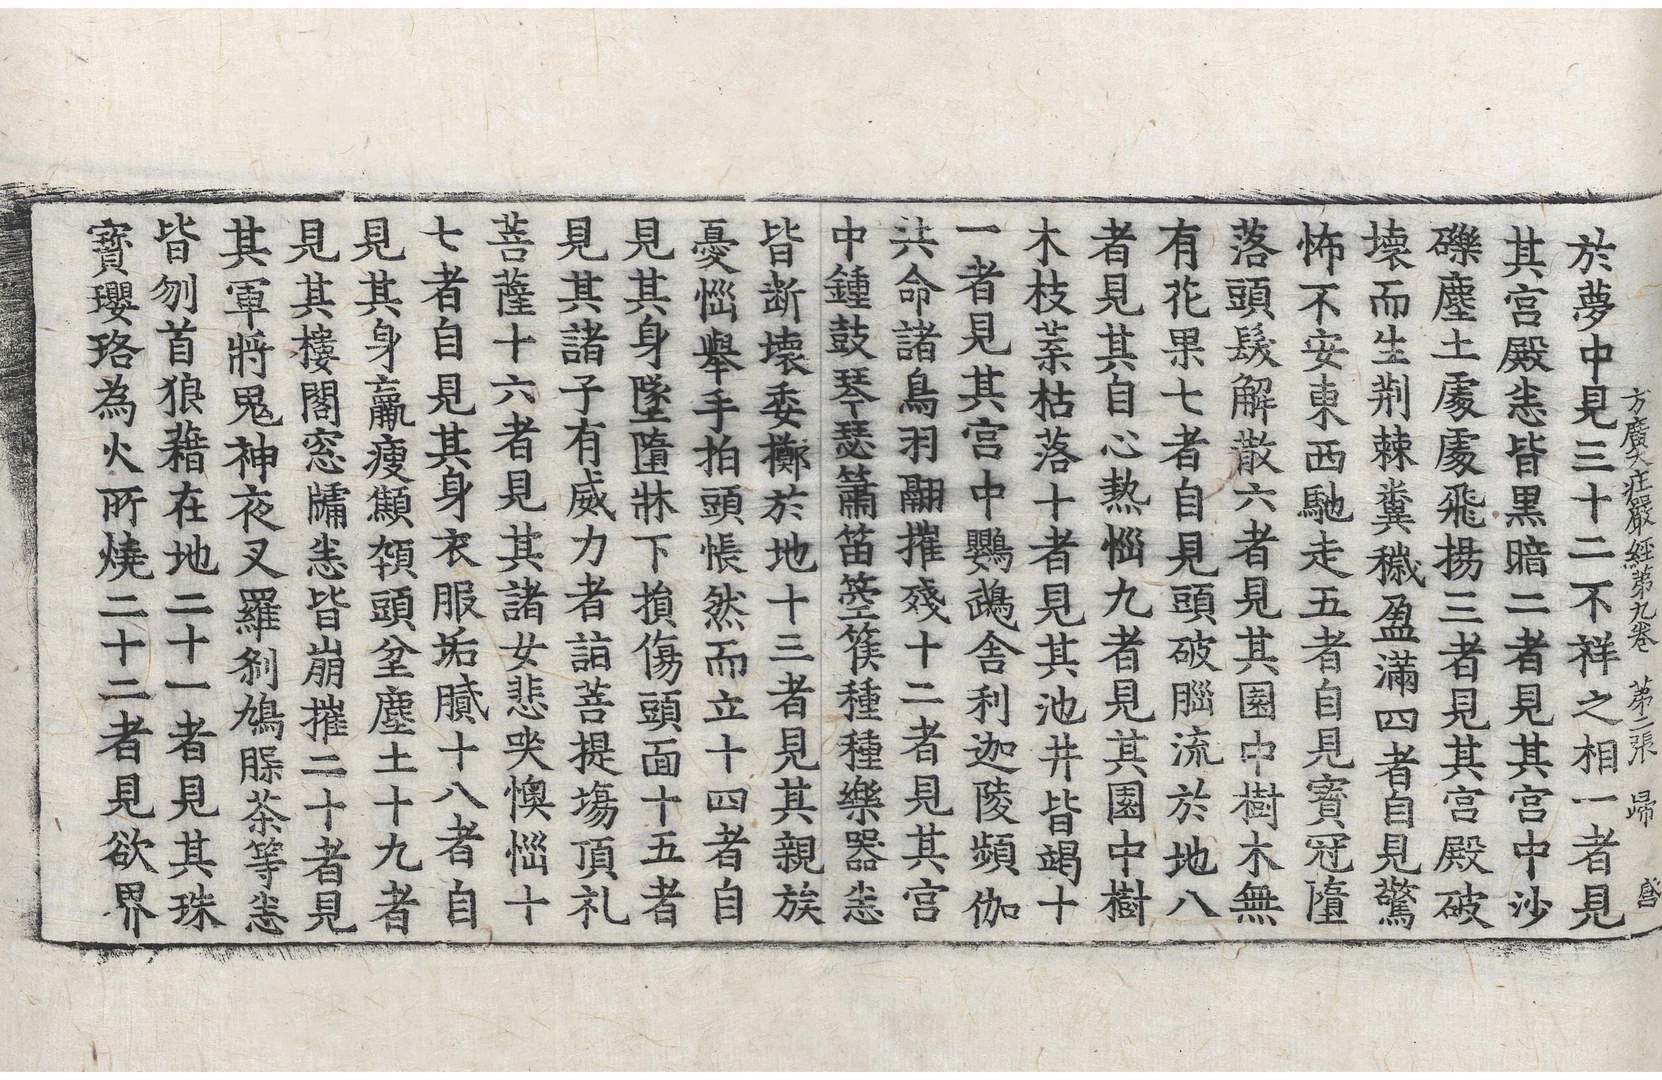 方廣大莊嚴經第九卷 第二張 歸
於夢中見三十二不祥之相一者見
其宫殿悉皆黑暗二者見其宫中沙
礫塵土處處飛揚三者見其宫殿破
壞而生荆棘糞穢盈滿四者自見驚
怖不安東西馳走五者自見寳冠墮
落頭髮解散六者見其園中樹木無
有花果七者自見頭破腦流於地八
者見其自心熱惱九者見其園中樹
木枝葉枯落十者見其池井皆竭十
一者見其宫中鸚鵡舍利迦陵頻伽
共命諸鳥羽翮摧殘十二者見其宫
中鍾鼓琴瑟簫笛箜篌種種樂器悉
皆断壞委擲於地十三者見其親族
憂惱舉手拍頭悵然而立十四者自
見其身墜墮牀下損傷頭面十五者
見其諸子有威力者詣菩提塲頂礼
菩薩十六者見其諸女悲哭懊惱十
七者自見其身衣服垢膩十八者自
見其身羸瘦顦顇頭坌塵土十九者
見其樓閣窓牖悉皆崩摧二十者見
其軍將鬼神夜叉羅刹鳩槃茶等悉
皆刎首狼藉在地二十一者見其珠
寳瓔珞為火所燒二十二者見欲界